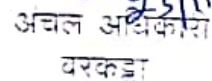 अंचल अधिकारी
बरकट्ठा